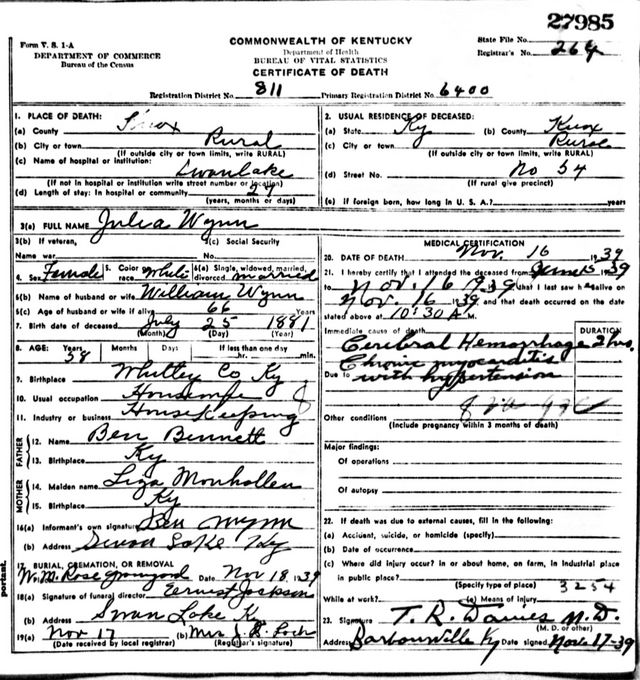 27985
Form V. S. 1-A
COMMONWEALTH OF KENTUCKY
State File No.
DEPARTMENT OF COMMERCE
Department of Health
Registrar's No. 264
Bureau of the Census
BUREAU OF VITAL STATISTICS
CERTIFICATE OF DEATH
Registration District No. 811 Primary Registration District No. 6400
1. PLACE OF DEATH:
(a) County Knox
(b) City or town Rural
(If outside city or town limits, write RURAL)
(c) Name of hospital or institution:
Swan Lake
(If not in hospital or institution write street number or location)
(d) Length of stay: In hospital or community 27
(years, months or days)
2. USUAL RESIDENCE OF DECEASED:
(a) State Ky (b) County Knox
(c) City or town Rural
(If outside city or town limits, write RURAL)
(d) Street No. No 54
(If rural give precinct)
(e) If foreign born, how long in U. S. A.? years
3(a) FULL NAME Julia Wynn
3(b) If veteran, 3(c) Social Security
Name war: No.
4. Sex Female 5. Color race White 6(a) Single, widowed, married, divorced married
6(b) Name of husband or wife William Wynn
6(c) Age of husband or wife if alive 66 Years
7. Birth date of deceased July 25 1881
(Month) (Day) (Year)
8. AGE: Years 58 Months Days If less than one day
hr. min.
9. Birthplace Whitley Co Ky
10. Usual occupation Housewife
11. Industry or business House Keeping
FATHER
12. Name Ben Bennett
13. Birthplace Ky
MOTHER
14. Maiden name Liza Monhollen
15. Birthplace Ky
16(a) Informant's own signature Ben Wynn
(b) Address Swan Lake Ky
17. BURIAL, CREMATION, OR REMOVAL
W. M. Rose Graveyard Date Nov 18, 1939
18(a) Signature of funeral director Ernest Jackson
(b) Address Swan Lake Ky
19(a) Nov 17 (b) Mrs
(Date received by local registrar) (Registrar's signature)
MEDICAL CERTIFICATION
20. DATE OF DEATH Nov. 16 1939
21. I hereby certify that I attended the deceased from June 15 1939
to Nov. 16 1939 that I last saw her alive on
Nov. 16 1939 and that death occurred on the date
stated above at 10:30 A M.
Immediate cause of death DURATION
Cerebral Hemorrhage 2 hrs.
Chronic myocarditis
Due to with hypertension
Other conditions
(Include pregnancy within 3 months of death)
Major findings:
Of operations
Of autopsy
22. If death was due to external causes, fill in the following:
(a) Accident, suicide, or homicide (specify)
(b) Date of occurrence
(c) Where did injury occur? in or about home, on farm, in industrial place
in public place?
(Specify type of place) 3254
While at work? (e) Means of injury
23. Signature T. R. Davies M. D.
(M. D. or other)
Address Barbourville Ky Date signed Nov-17-39
portant.